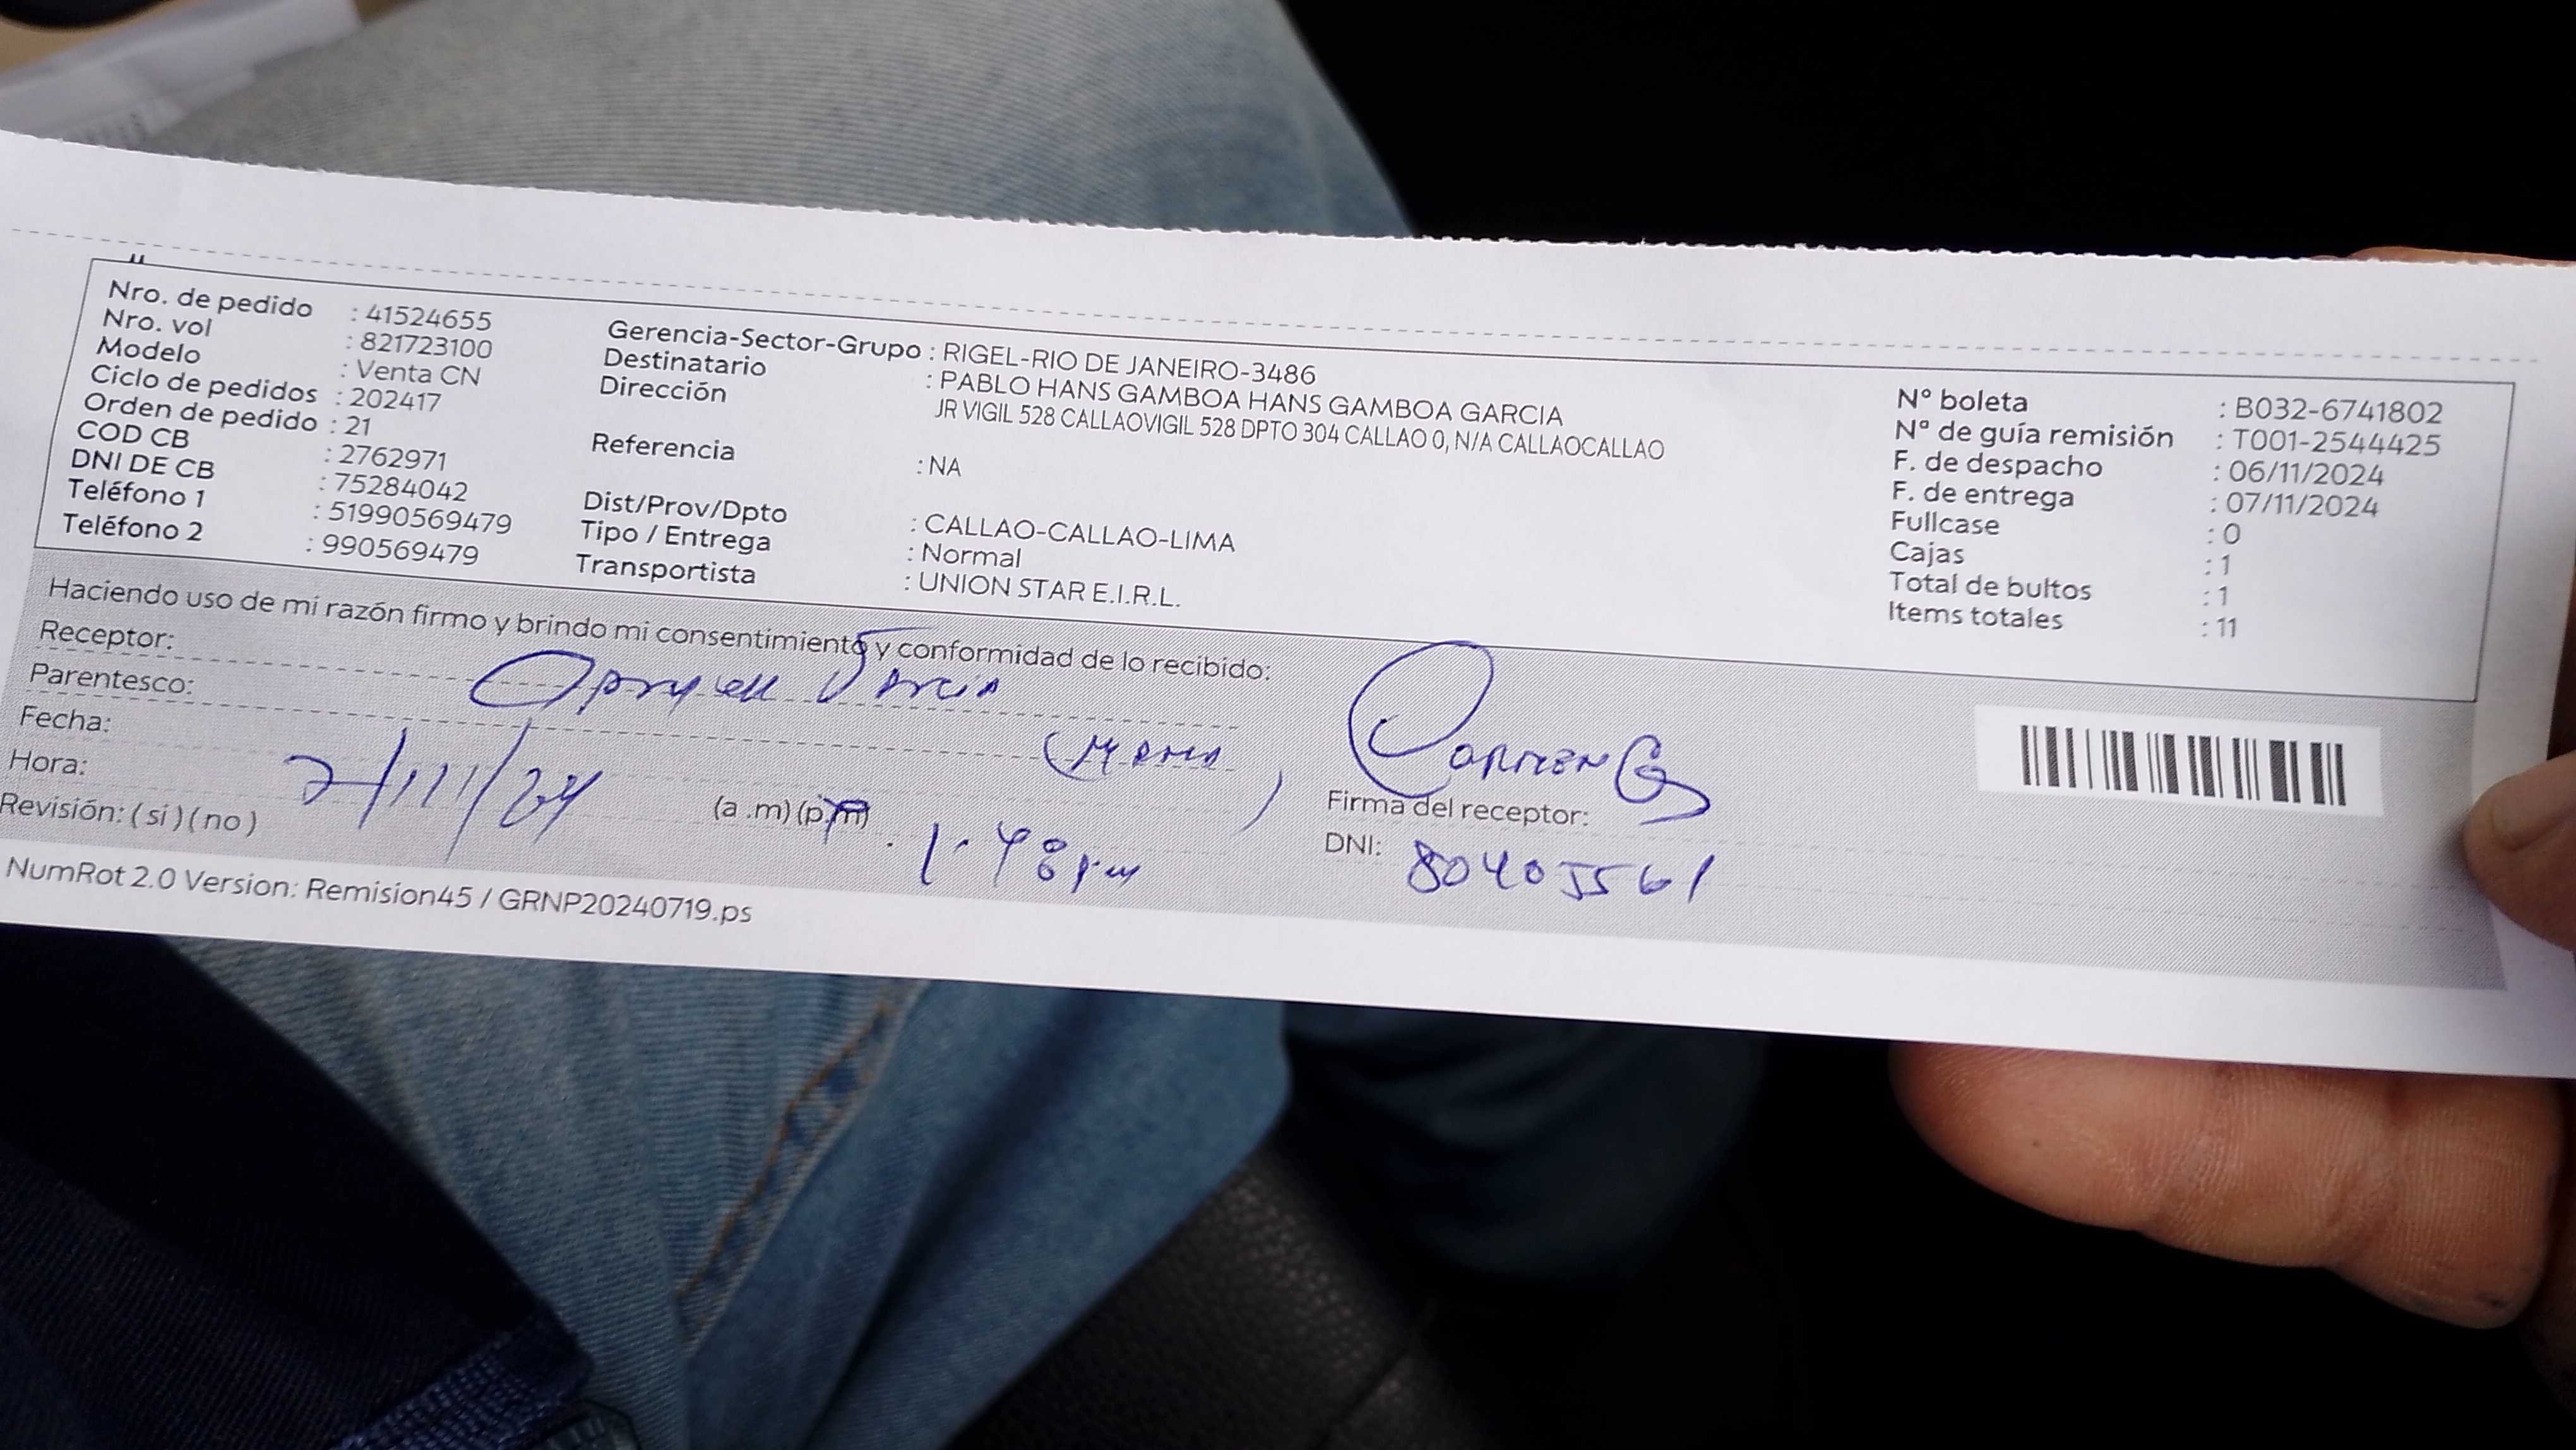 Nro. de pedido : 41524655
Nro. vol : 821723100
Modelo : Venta CN
Ciclo de pedidos : 202417
Orden de pedido : 21
COD CB : 2762971
DNI DE CB : 75284042
Teléfono 1 : 51990569479
Teléfono 2 : 990569479
Gerencia-Sector-Grupo : RIGEL-RIO DE JANEIRO-3486
Destinatario : PABLO HANS GAMBOA HANS GAMBOA GARCIA
Dirección JR VIGIL 528 CALLAOVIGIL 528 DPTO 304 CALLAO 0, N/A CALLAOCALLAO
Referencia : NA
Dist/Prov/Dpto : CALLAO-CALLAO-LIMA
Tipo / Entrega : Normal
Transportista : UNION STAR E.I.R.L.
N° boleta : B032-6741802
Nª de guía remisión : T001-2544425
F. de despacho : 06/11/2024
F. de entrega : 07/11/2024
Fullcase : 0
Cajas : 1
Total de bultos : 1
Items totales : 11
Haciendo uso de mi razón firmo y brindo mi consentimiento y conformidad de lo recibido:
Receptor: Garcia
Parentesco: (mama)
Fecha: 7/11/24
Hora: (a .m) (p.m) 1.48 pm
Revisión: ( si ) ( no )
Carmen G
Firma del receptor:
DNI: 80405561
NumRot 2.0 Version: Remision45 / GRNP20240719.ps